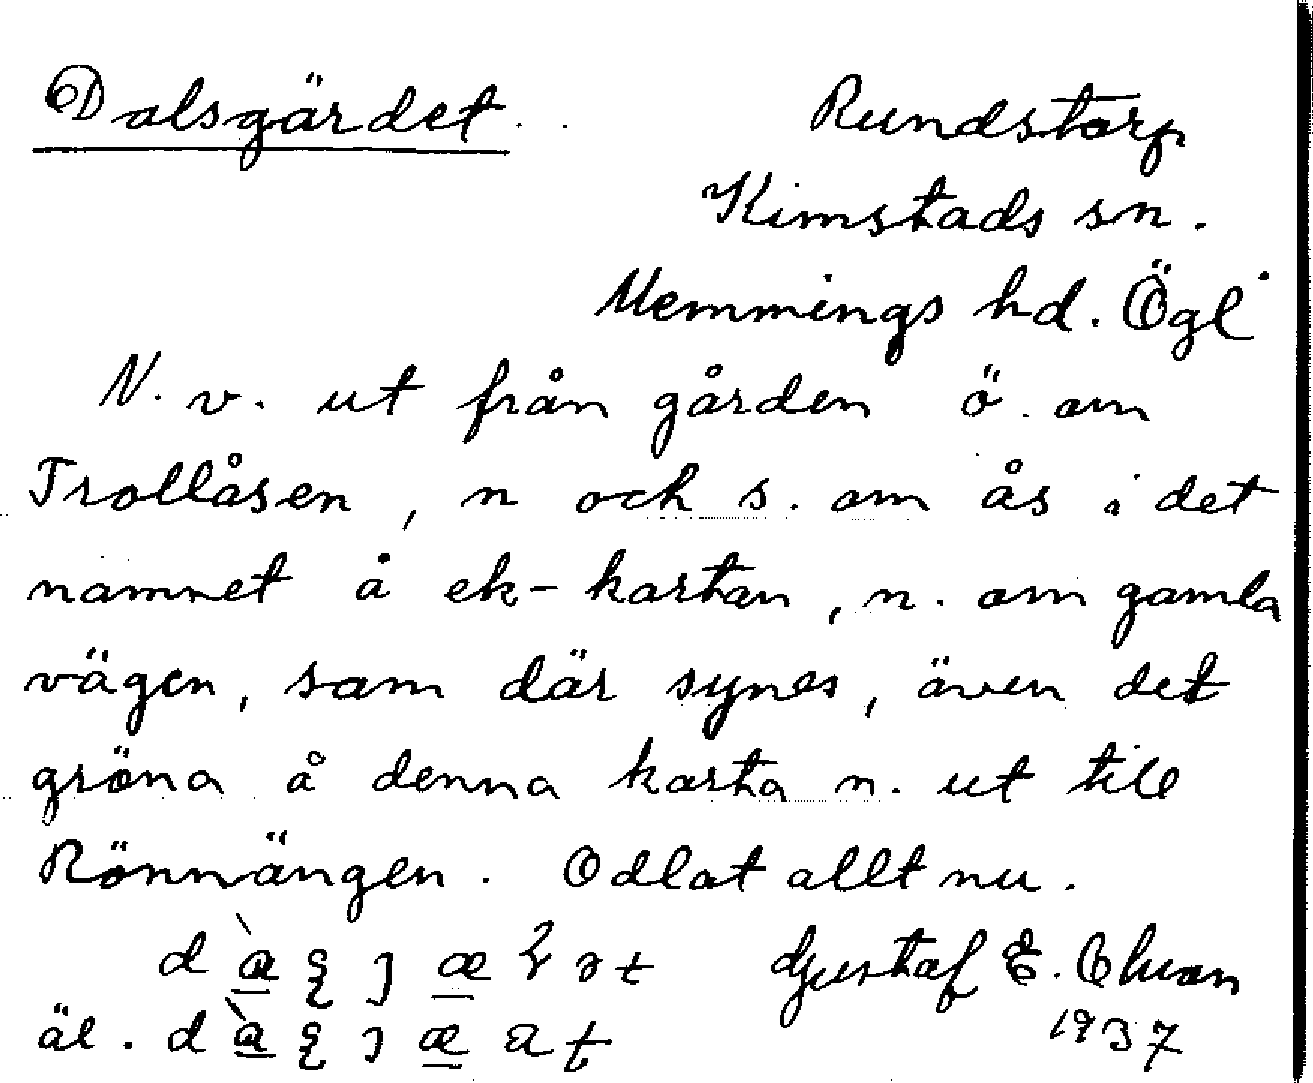 Dalsgärdet. Rundstorp
Kimstads sn.
Memmings hd. Ögl.
N. v. ut från gården ö. om
Trollåsen, n och s. om ås i det
namnet å ek-kartan, n. om gamla
vägen, som där synes, även det
gröna å denna karta n. ut till
Rönnängen. Odlat allt nu.
Gustaf E.
äl.
1937